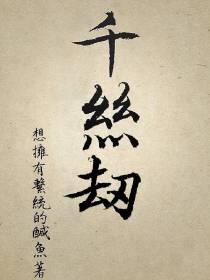 千絲劫
想擁有繫統的鹹魚著